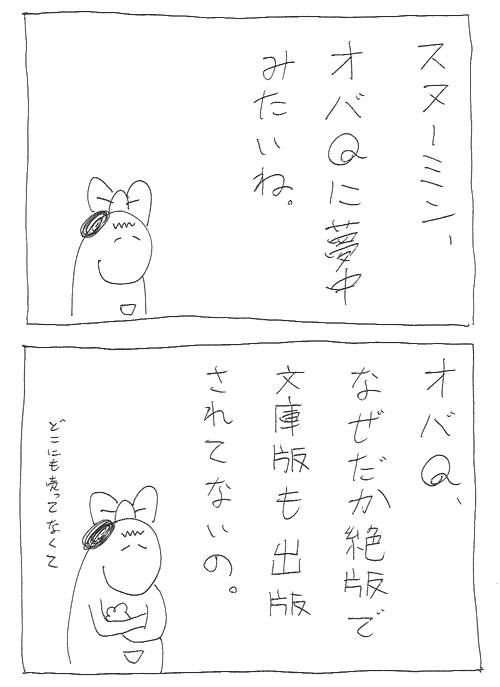 スヌーミン、
オバQに夢中
みたいね。
オバQ、
なぜだか絶版で
文庫版も出版
されてないの。
どこにも売ってなくて